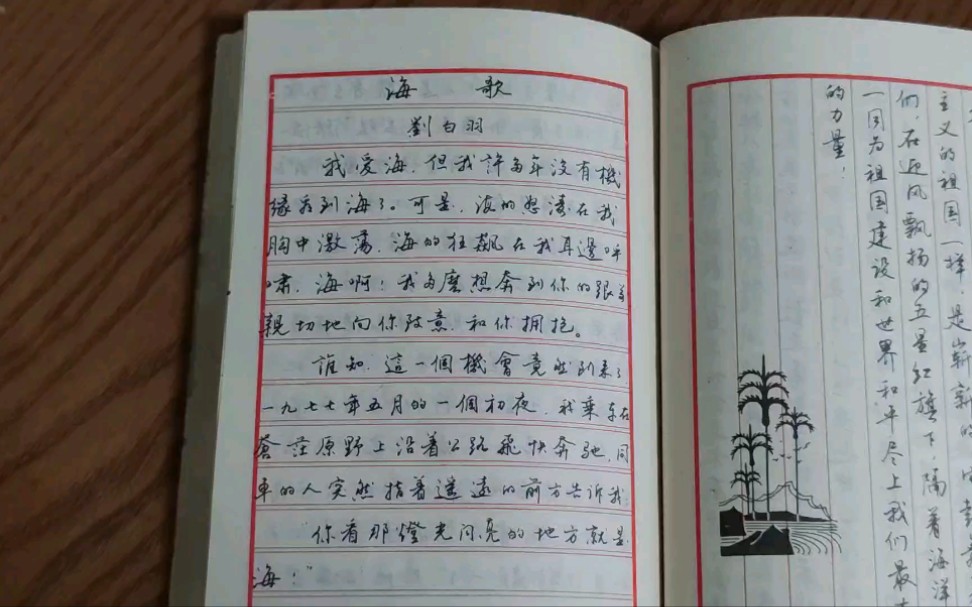 海歌
劉白羽
我爱海，但我許多年没有機
缘看到海了。可是，海的怒濤在我
胸中激荡，海的狂飙在我耳邊呼
啸，海啊！我多麽想奔到你的跟前
親切地向你致意，和你拥抱。
誰知，這一個機會竟然到来了，
一九七七年五月的一個初夜，我乘车在
苍茫原野上沿着公路飛快奔驰，同
車的人突然指着遥遠的前方告诉我：
“你看那燈光闪亮的地方就是
海！”
主义的祖国一样，是崭新的
们，在迎风飘扬的五星红旗下，隔着海洋
一同为祖国建设和世界和平尽上我们最大
的力量！